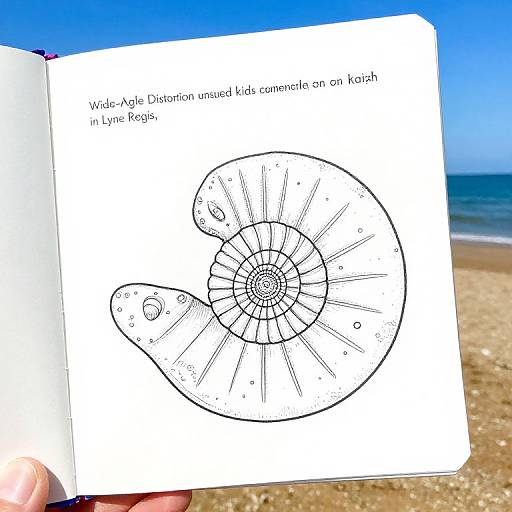 Wide-Agle Distortion unsued kids comenctle on on kaizh
in Lyne Regis,